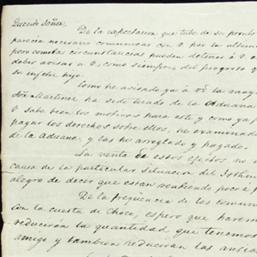 Querido Señor,
De la espectansa que tube de su pronto
parecia necesario comunicar con V por la ultima
pero como las circunstancias pueden detener á V
debo avisar a V, como siempre, del progreso
su infeliz hijo.
Como he avisado que á V la ma
Doña Martinez ha sido tirado de la Aduana
V sabe los motivos para este y como ya
pagar los derechos sobre ellos, he examinado
de la Aduana, y los he arreglado y pagado.
La venta de estos efectos no
causa de la particular situacion del Isthmo
alegro de decer que estan realizando poco á
De la frequencia de las comun
con la cuesta de Choco, espero que harem
reducirán la quantidad que tenemos
amigo y tambien reducirán las ansia